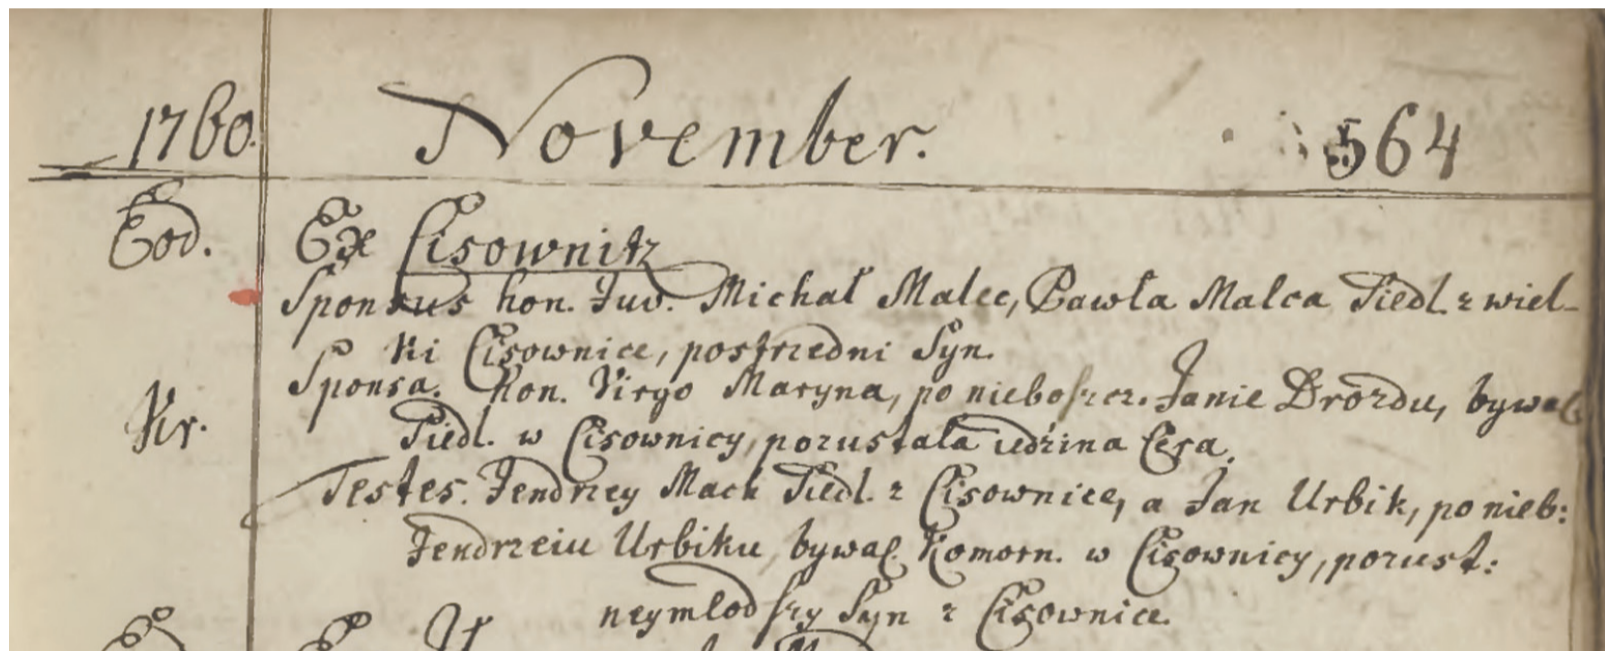 1760. November. 564
Eod. Ex Cisownitz
Sponsus hon. Juv. Michał Malec, Pawła Malca Siedl. z wiel-
ki Cisownice, postrzedni Syn.
Sponsa. hon. Virgo Maryna, po nieboszcz. Janie Drozdu, bywał.
Kr. Siedl. w Cisownicy, pozustała iedzina Cera.
Testes. Jendrzey Mach Siedl. z Cisownice, a Jan Urbik, po nieb:
Jendrzeiu Urbiku, bywał. Komorn. w Cisownicy, pozust:
neymłodszy Syn z Cisownice.